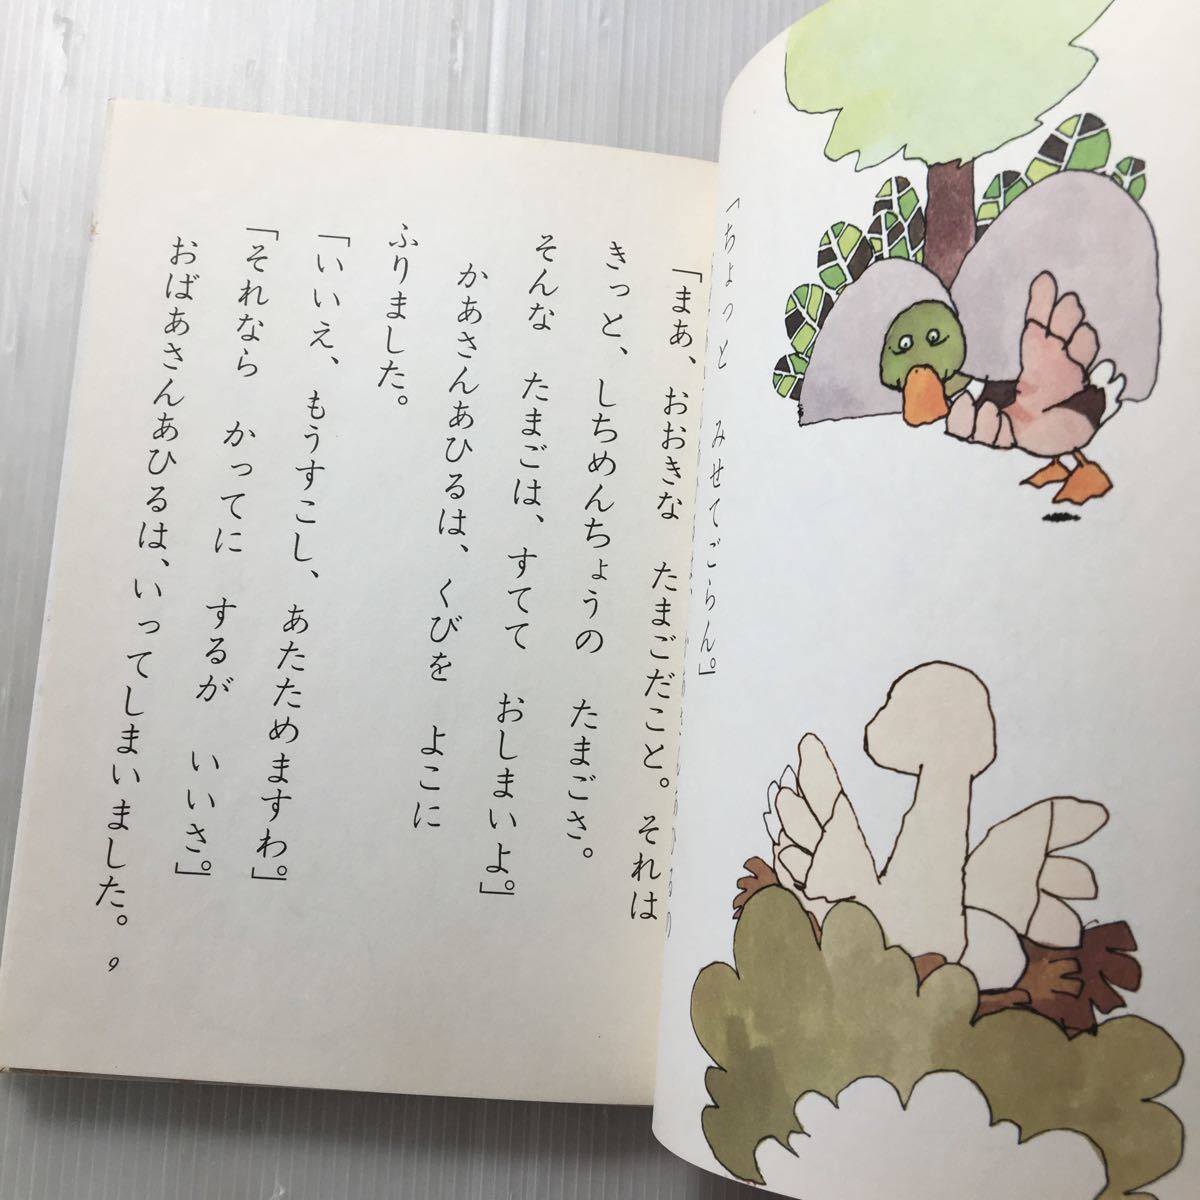 「ちょっと みせてごらん。」
「まあ、おおきな たまごだこと。それは
きっと、しちめんちょうの たまごさ。
そんな たまごは、すてて おしまいよ。」
かあさんあひるは、くびを よこに
ふりました。
「いいえ、もうすこし、あたためますわ。」
「それなら かってに するが いいさ。」
おばあさんあひるは、いってしまいました。
9